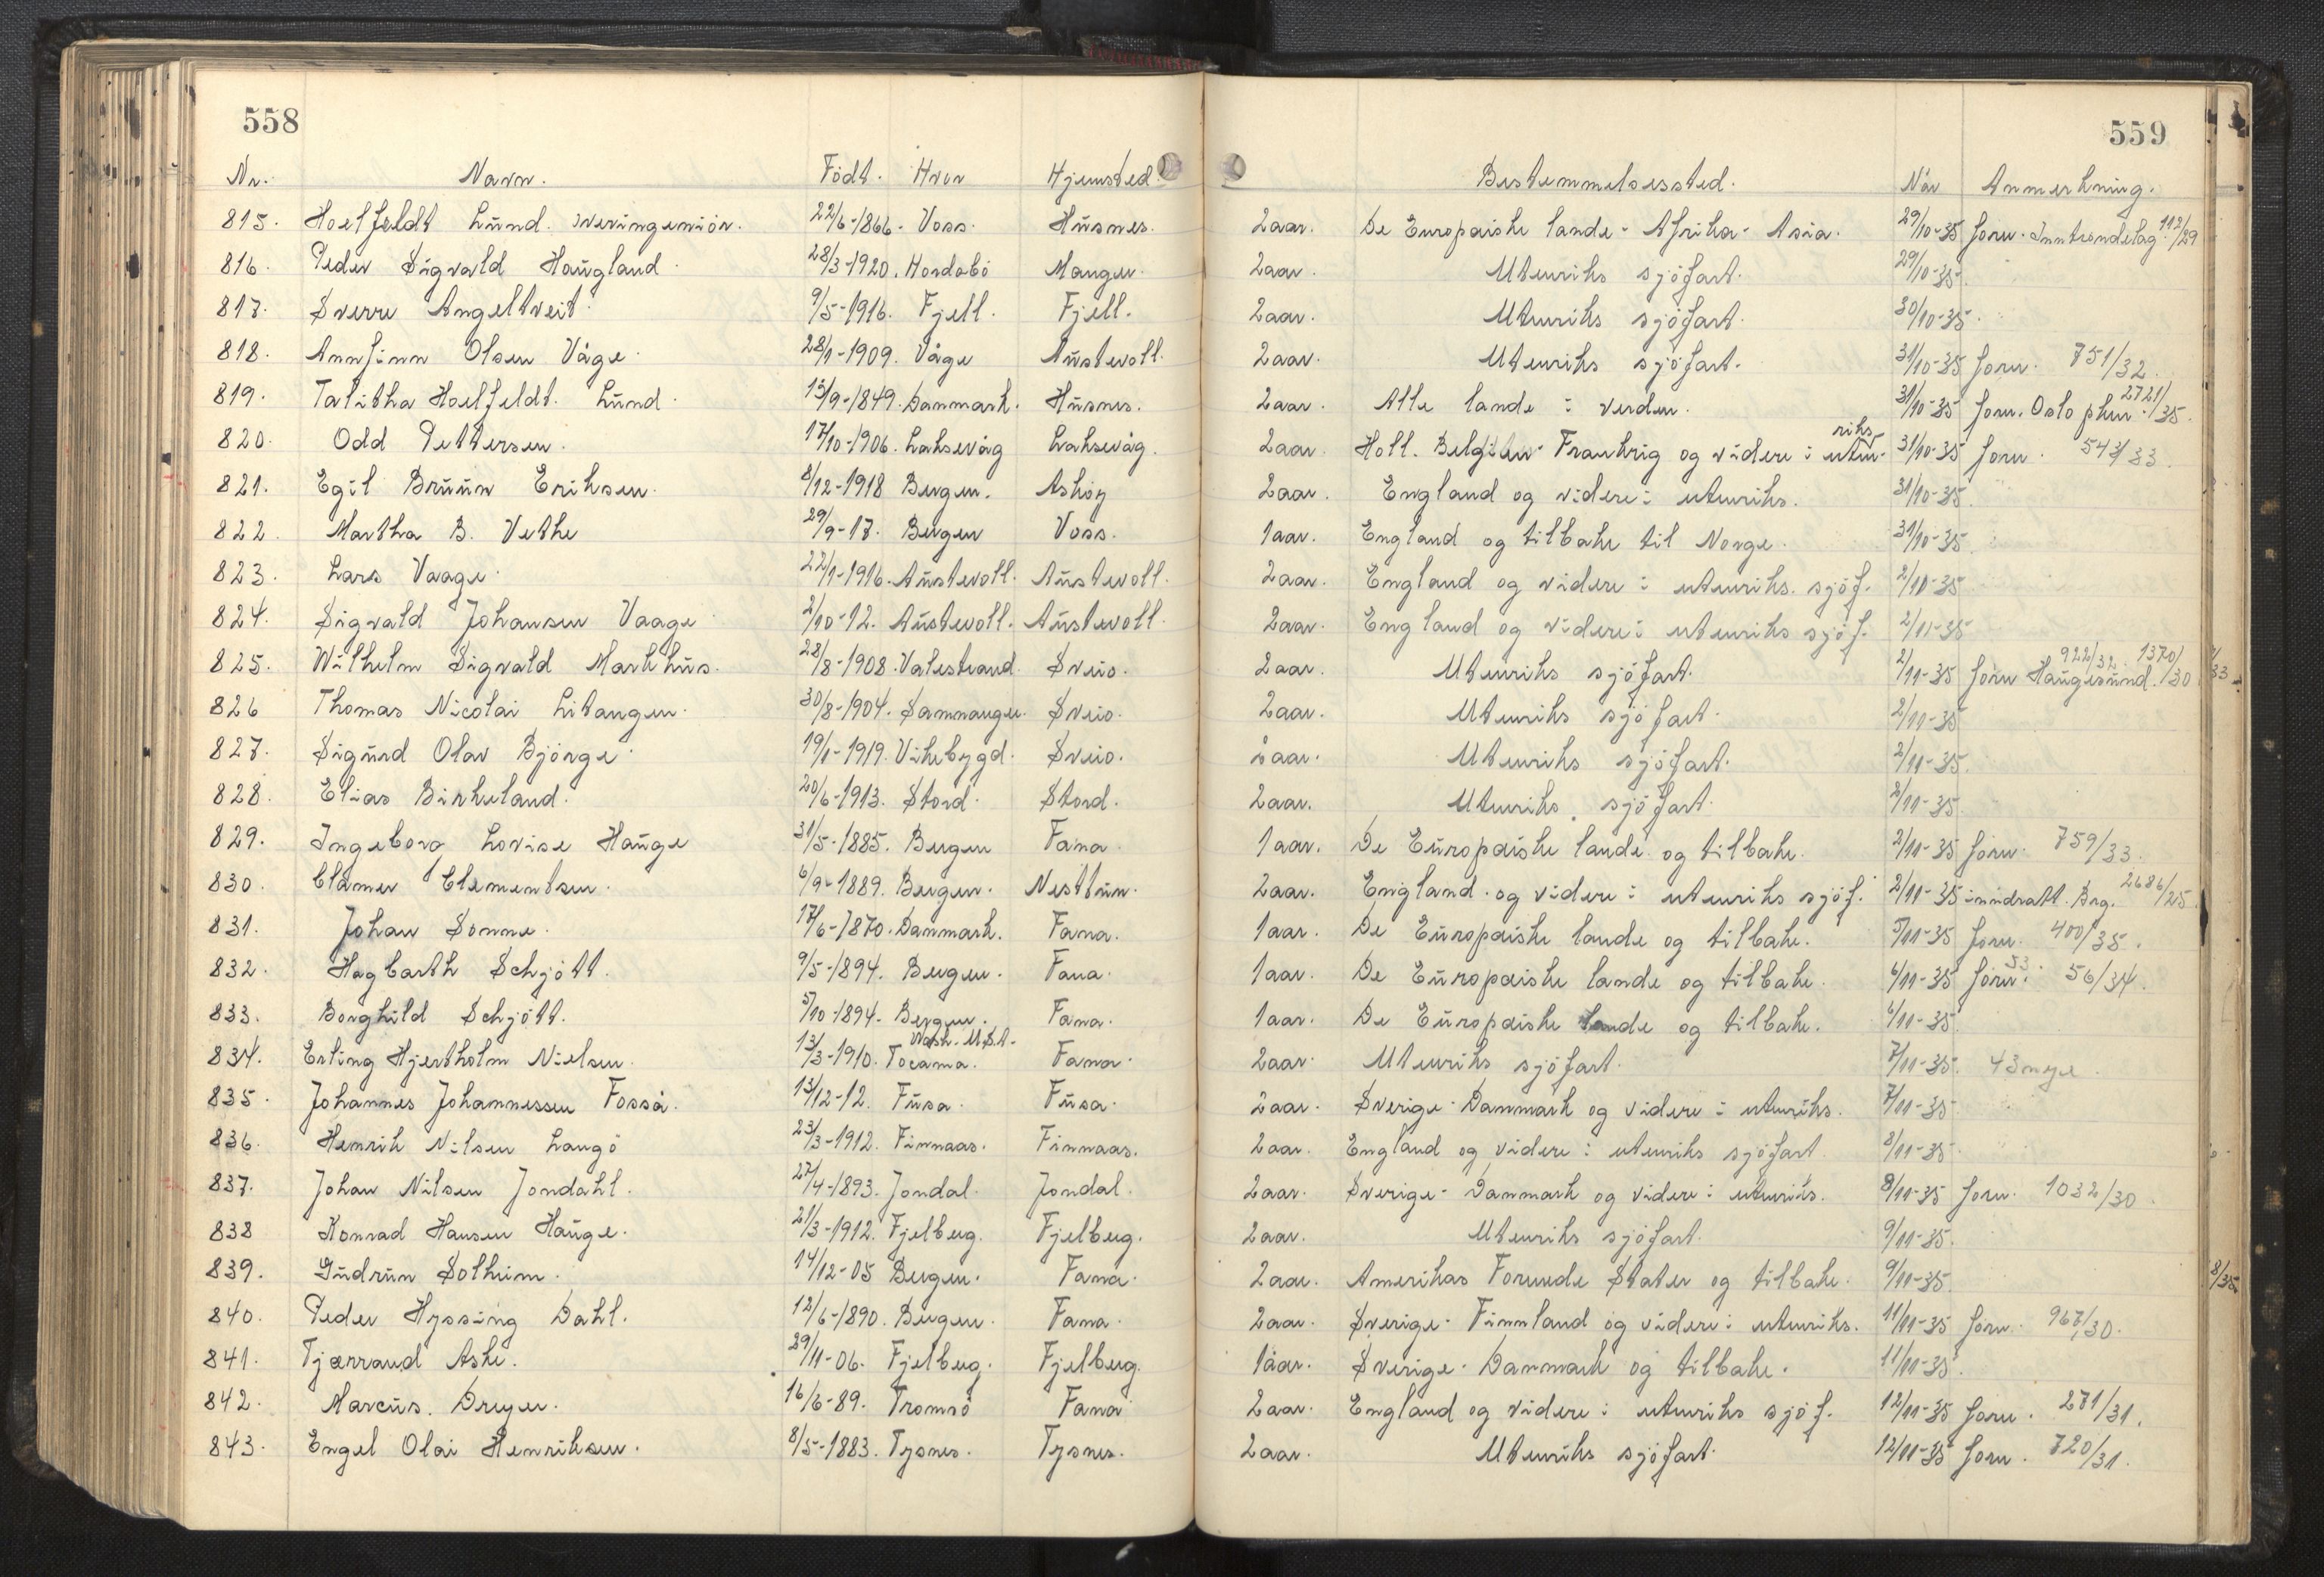 558
559
Nr. Navn. Födt. Hvor Hjemsted. Bestemmelsessted. Når Anmerkning.
815. Hoelfeldt Lund. overingeniör. 22/6-1866. Voss. Husnes. 2 aar. De Europæiske lande - Afrika - Asia. 29/10-35 forn. Inntrøndelag 112/29
816. Peder Sigvald Haugland. 28/3-1920. Hordabö Manger. 2 aar. Utenriks sjöfart. 29/10-35.
817. Sverre Angeltveit. 9/5-1916. Fjell. Fjell. 2 aar. Utenriks sjöfart. 30/10-35.
818. Annfinn Olsen Våge. 28/1-1909. Våge Austevoll. 2 aar. Utenriks sjöfart. 31/10-35 forn. 751/32.
819. Talitha Hoelfeldt. Lund. 15/9-1849. Danmark. Husnes. 2 aar. Alle lande i verden. 31/10-35 forn. Oslo pkm. 2721/35.
820. Odd Pettersen. 17/10-1906. Laksevåg Laksevåg. 2 aar. Holl. Belgien - Frankrig og videre i uten-riks 31/10-35 forn. 543/33.
821. Egil Bruun Eriksen. 8/12-1918 Bergen. Askøy 2 aar. England og videre i utenriks. 31/10-35.
822. Martha B. Vethe 29/9-17. Bergen Voss. 1 aar. England og tilbake til Norge. 31/10-35.
823. Lars Vaage. 22/1-1916. Austevoll. Austevoll. 2 aar. England og videre i utenriks. sjöf. 2/10-35
824. Sigvald Johansen Vaage 2/10-12. Austevoll. Austevoll. 2 aar. England og videre i utenriks sjöf. 2/11-35
825. Wilhelm Sigvald Markhus. 28/8-1908. Valestrand. Sveio. 2 aar. Utenriks sjöfart. 2/11-35 forn Haugesund. 922/32. 1370/30
826 Thomas Nicolai Litangen. 30/8-1904. Samnanger. Sveio. 2 aar. Utenriks sjöfart. 2/11-35
827. Sigurd Olav Bjørge. 19/1-1919. Vikebygd. Sveio. 2 aar. Utenriks sjöfart. 2/11-35.
828. Elias Birkeland. 20/6-1913. Stord. Stord. 2 aar. Utenriks sjöfart. 2/11-35.
829. Ingeborg Lovise Hauge 31/5-1885. Bergen Fana. 1 aar. De Europæiske lande og tilbake. 2/11-35 forn. 759/33.
830. Clamer Clementsen. 6/9-1889. Bergen. Nesttun. 2 aar. England og videre i utenriks sjöf. 2/11-35 inndratt. Brg. 2686/25.
831. Johan Sonne. 17/6-1870. Danmark. Fana. 1 aar. De Europæiske lande og tilbake. 5/11-35 forn. 400/35.
832. Hagbarth Schjött. 9/5-1894. Bergen. Fana. 1 aar. De Europæiske lande og tilbake. 6/11-35 forn. 53. 56/34.
833. Borghild Schjött. 5/10-1894. Bergen. Fana. 1 aar. De Europæiske lande og tilbake. 6/11-35.
834. Erling Hjertholm Nielsen. 13/3-1910. Tocama. Wash. U.S.A. Fana. 2 aar. Utenriks sjöfart. 7/11-35. 43 mye.
835. Johannes Johannessen Fosså. 13/12-12. Fusa. Fusa. 2 aar. Sverige - Danmark og videre i utenriks. 7/11-35
836. Henrik Nilsen Langö 23/3-1912. Finnaas. Finnaas. 2 aar. England og videre i utenriks sjöfart. 8/11-35
837. Johan Nilsen Jondahl. 27/4-1893. Jondal. Jondal. 2 aar. Sverige - Danmark og videre i utenriks. 8/11-35 forn. 1032/30.
838 Konrad Hansen Hauge. 21/3-1912. Fjelberg. Fjelberg. 2 aar. Utenriks sjöfart. 9/11-35.
839. Gudrun Solheim. 14/12-05 Bergen. Fana. 2 aar. Amerikas Forenede Stater og tilbake. 9/11-35.
840. Peder Hyssing Dahl. 12/6-1890. Bergen. Fana. 2 aar. Sverige - Finnland og videre i utenriks. 11/11-35 forn. 967/30.
841. Tjærand Aske. 29/11-06. Fjelberg. Fjelberg. 1 aar. Sverige - Danmark og tilbake. 11/11-35.
842. Marcus. Dreyer. 16/6-89. Tromsö Fana 2 aar. England og videre i utenriks sjöf. 12/11-35 forn. 271/31.
843. Engel Olai Henriksen. 8/5-1883. Tysnes. Tysnes. 2 aar. Utenriks sjöfart. 12/11-35 forn. 720/31.